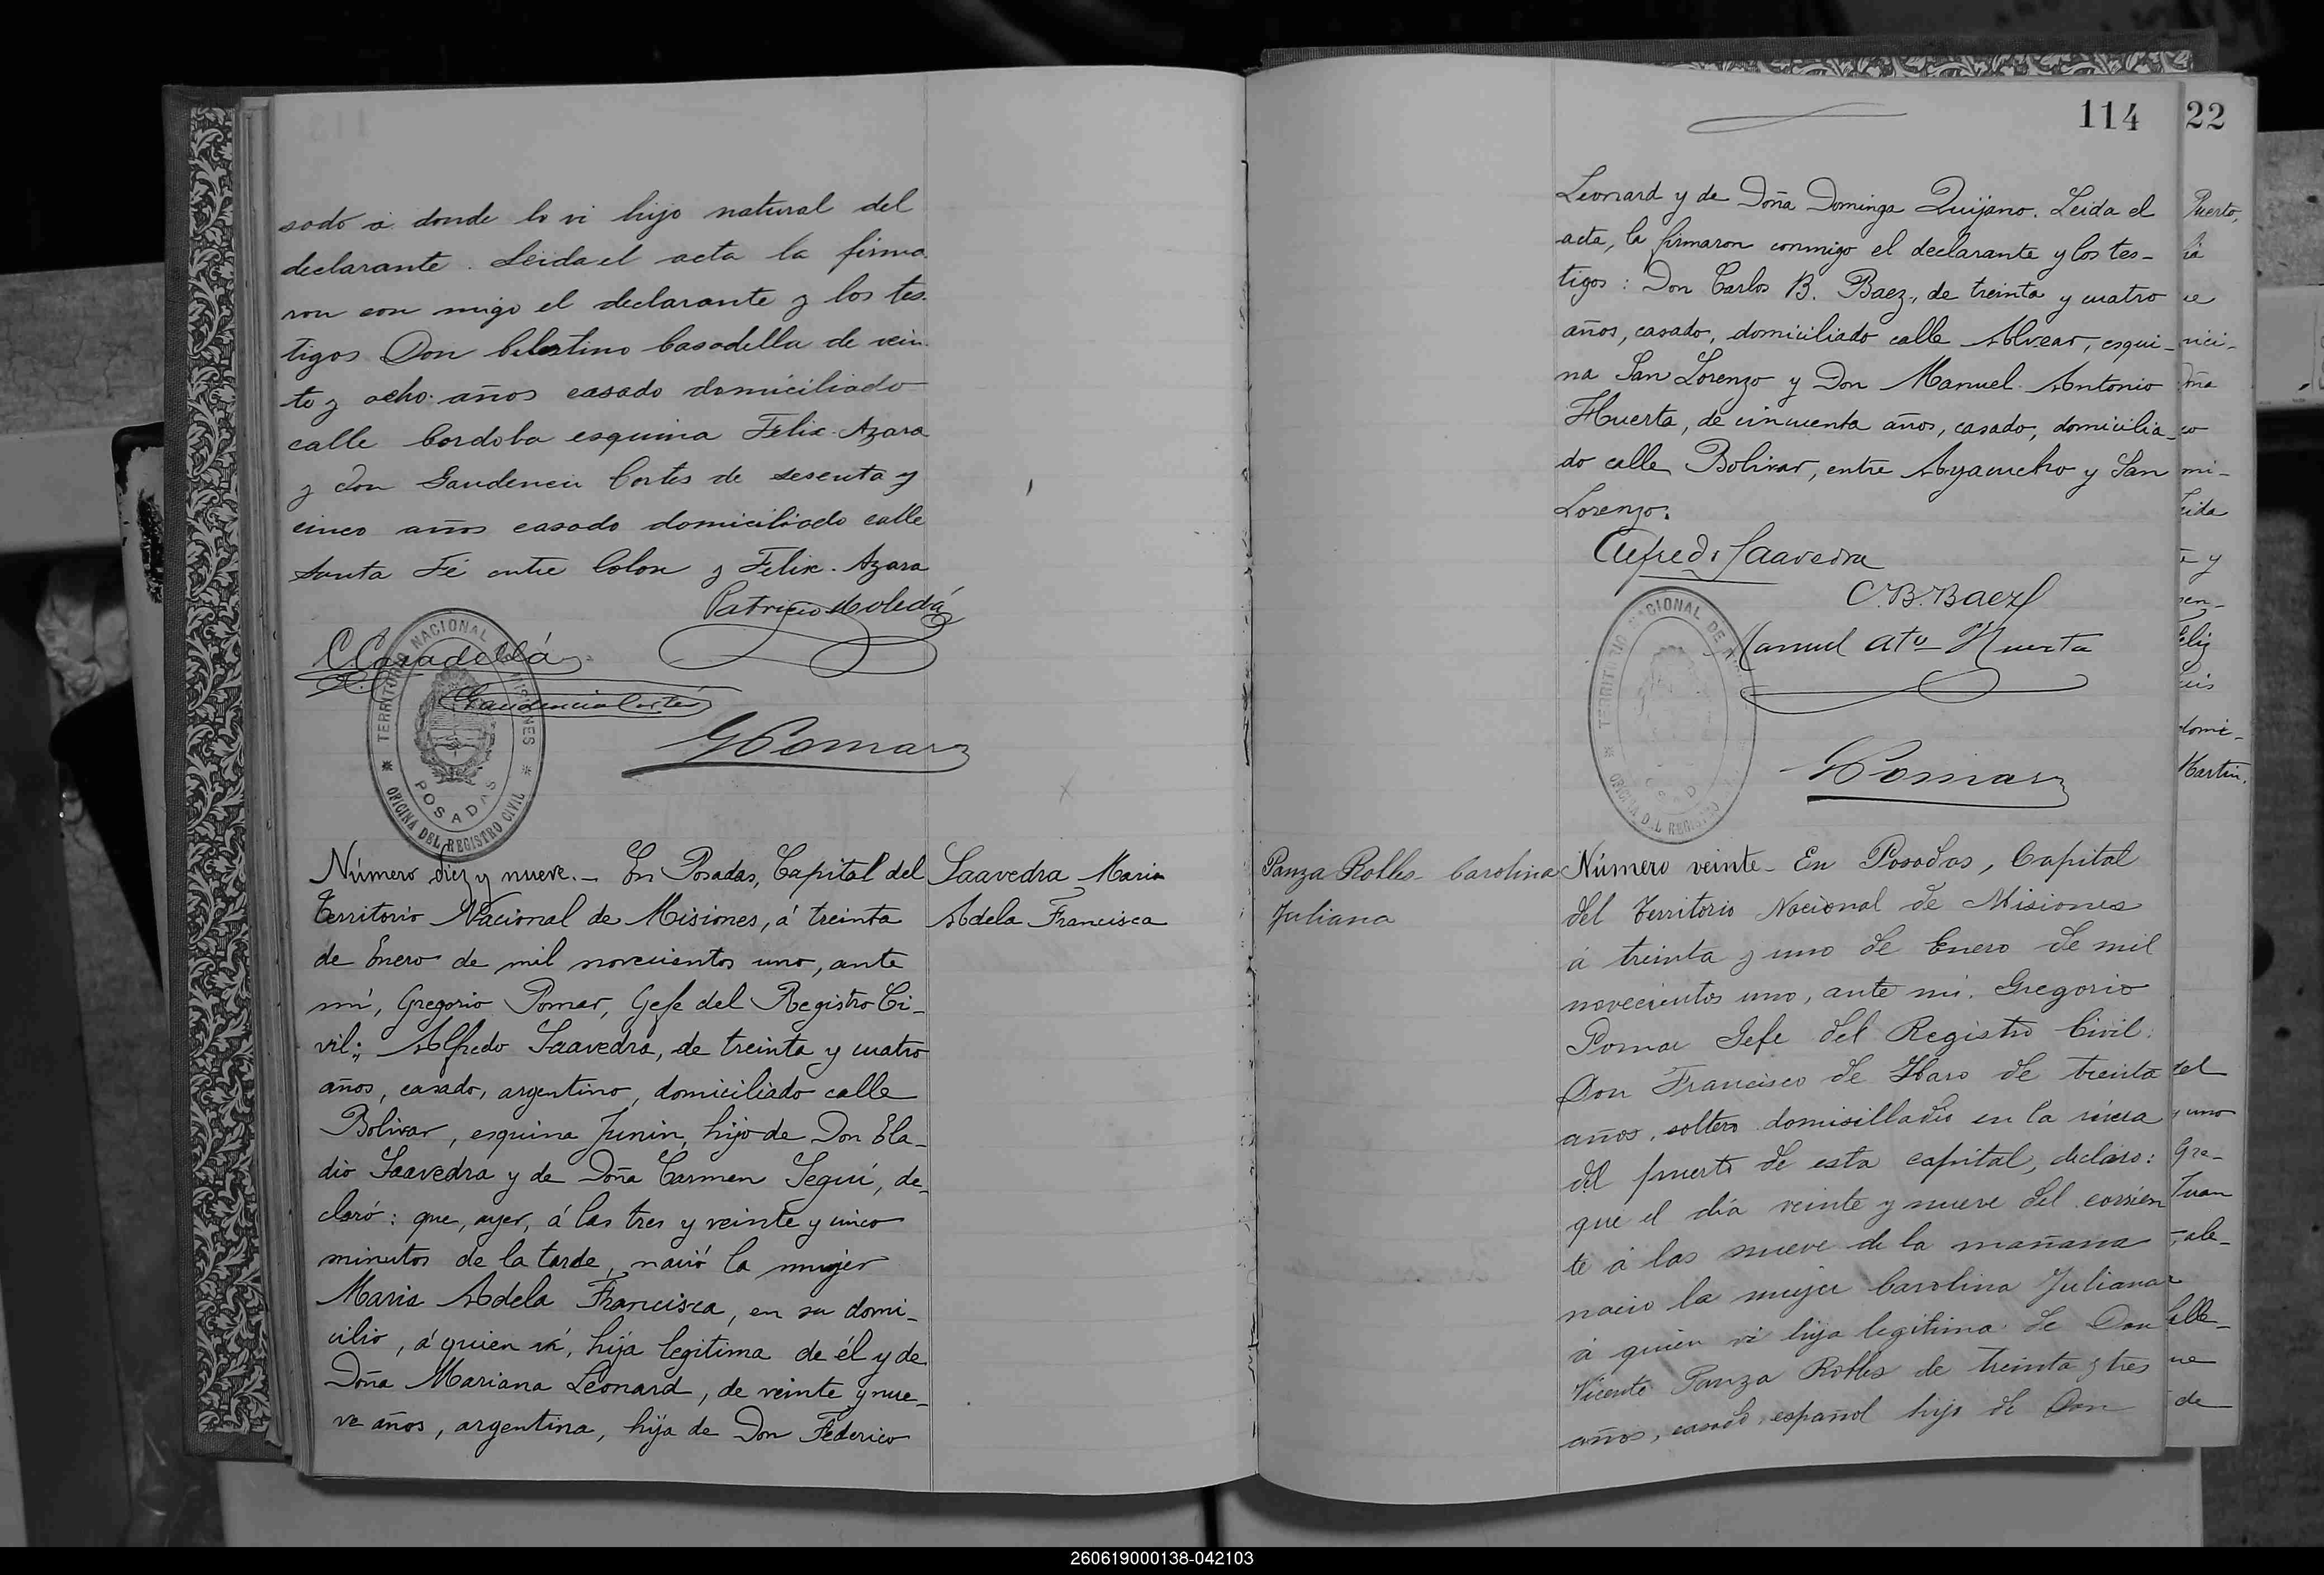 sado a donde lo vi hijo natural del
declarante. Leida el acta la firma
ron con migo el declarante y los tes.
tigos Don Celestino Casadella de vein
te y ocho años casado domiciliado
calle Cordoba esquina Felix Azara
y don Gaudencio Cortes de sesenta y
cinco años casado domiciliado calle
Santa Fé entre Colon y Felix Azara
Patricio
C Casadellá
Gaudencio Cortés
G Pomar
TERRITORIO NACIONAL DE MISIONES
POSADAS
OFICINA DEL REGISTRO CIVIL
Número diez y nueve.- En Posadas, Capital del
Territorio Nacional de Misiones, á treinta
de Enero de mil novecientos uno, ante
mi, Gregorio Pomar, Gefe del Registro Ci-
vil; Alfredo Saavedra, de treinta y cuatro
años, casado, argentino, domiciliado calle
Bolivar, esquina Junin, hijo de Don Ela-
dio Saavedra y de Doña Carmen Seguí, de-
claró: que, ayer, á las tres y veinte y cinco
minutos de la tarde, nació la mujer
Maria Adela Francisca, en su domi-
cilio, á quien ví, hija legitima de él y de
Doña Mariana Leonard, de veinte y nue-
ve años, argentina, hija de Don Federico
Saavedra Maria
Adela Francisca
114
Leonard y de Doña Dominga Quijano. Leida el
acta, la firmaron conmigo el declarante y los tes-
tigos: Don Carlos B. Baez, de treinta y cuatro
años, casado, domiciliado calle Alvear, esqui-
na San Lorenzo y Don Manuel Antonio
Huerta, de cincuenta años, casado, domicilia-
do calle Bolivar, entre Ayacucho y San
Lorenzo.
Alfredo Saavedra
C.B. Baez
Manuel Ato Huerta
G Pomar
TERRITORIO NACIONAL DE
POSADAS
OFICINA DEL REGISTRO
Panza Robles Carolina
Juliana
Número veinte- En Posadas, Capital
del Territorio Nacional de Misiones
á treinta y uno de Enero de mil
novecientos uno, ante mi. Gregorio
Pomar Gefe del Registro Civil:
Don Francisco de Haro de treinta
años, soltero domisilladio en la rivera
del puerto de esta capital, declaro:
que el día veinte y nueve del corrien
te á las nueve de la mañana
nacio la mujer Carolina Juliana
á quien vi hija legitima de Don
Vicente Panza Robles de treinta y tres
años, casado, español hijo de Don
22
Puerto,
ve
nici-
Doña
co
mi-
y
domi-
Martin.
del
y uno
Gre-
Juan
Calle
ne
de
260619000138-042103